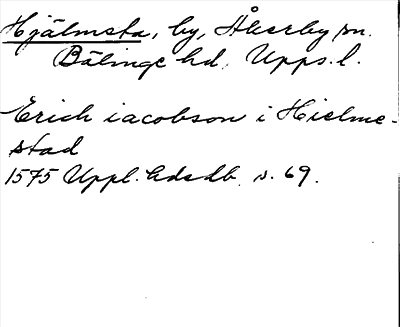 Hjälmsta, by, Åkerby sn.
Bälinge hd. Upps. l.
Erich iacobson i Hielme-
stad
1575 Uppl. hdsdb. s. 69.